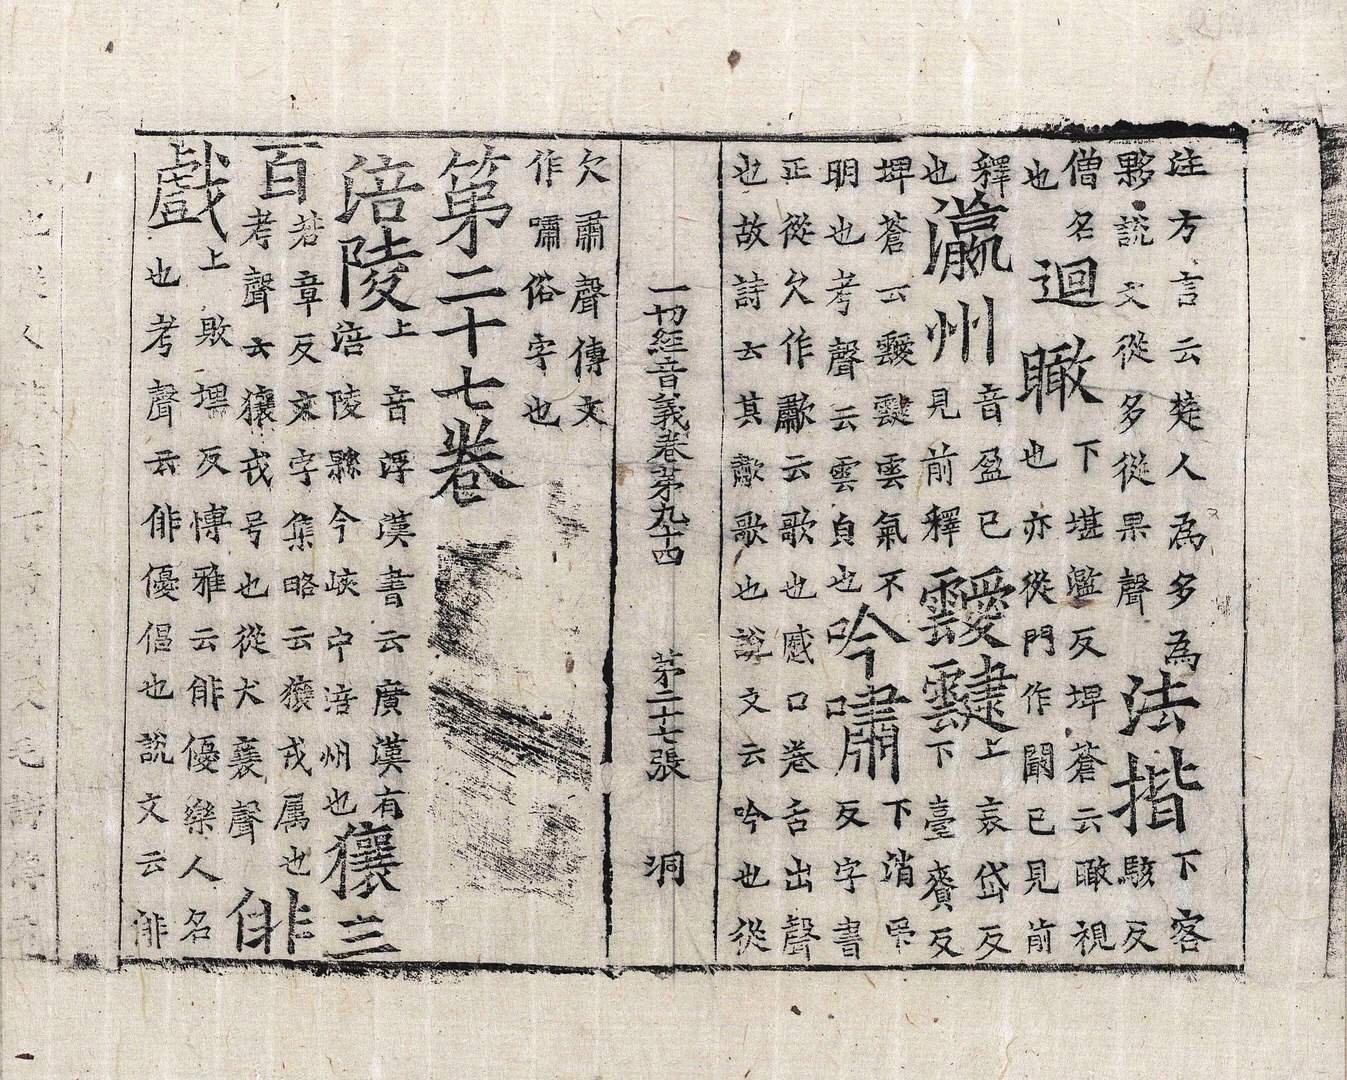 注方言云楚人為多為
夥說文從多從果聲
法揩
下客
駭反
僧名
也
迴瞰
下堪濫反埤蒼云瞰視
也亦從門作闞已見前
釋
也
瀛州
音盈已
見前釋
靉靆
上哀岱反
下臺賚反
埤蒼云靉靆雲氣不
明也考聲云雲皃也
吟嘯
下消吊
反字書
正從欠作歗云歌也慼口卷舌出聲
也故詩云其歗歌也說文云吟也從
一切經音義卷第九十四 第二十七張 洞
欠肅聲傳文
作嘯俗字也
第二十七卷
涪陵
上音浮漢書云廣漢有
涪陵縣今峽中涪州也
獽三
百
若章反文字集略云獽戎属也
考聲云獽戎号也從犬襄聲
俳
戲
上敗埋反博雅云俳優樂人名
也考聲云俳優倡也說文云俳